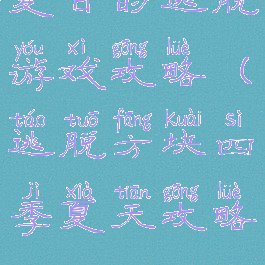 夏日的逃脱
yóu xì gōng lüè
游戏攻略（
táo tuō fāng kuài sì
逃脱方块四
jì xià tiān gōng lüè
季夏天攻略